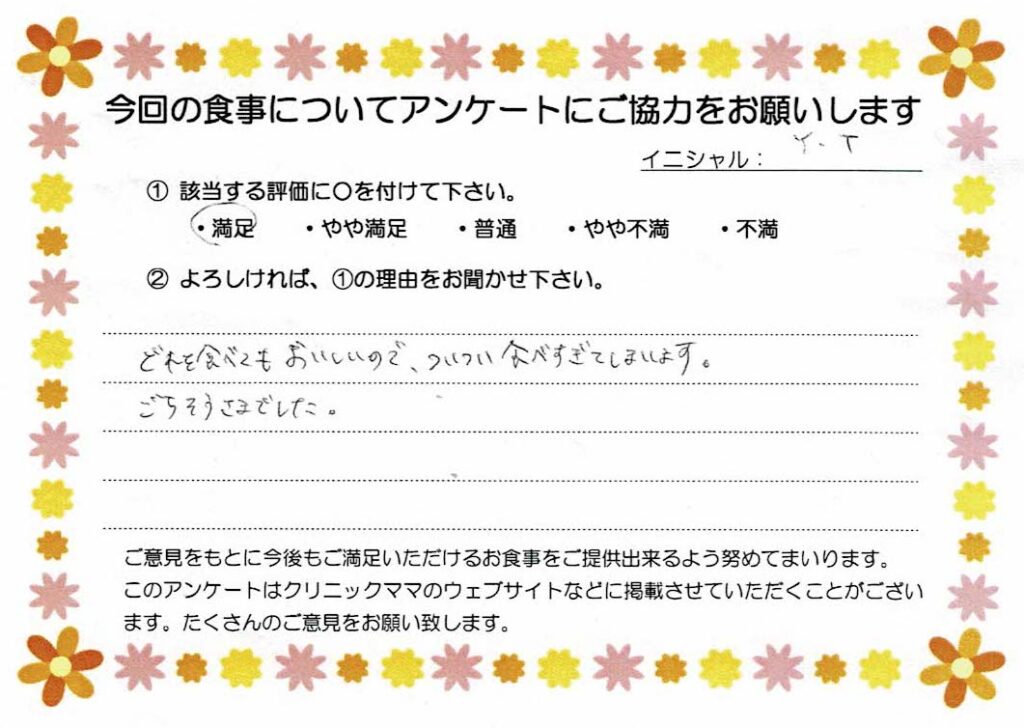 今回の食事についてアンケートにご協力をお願いします
イニシャル： Y.T
① 該当する評価に〇を付けて下さい。
・満足 ・やや満足 ・普通 ・やや不満 ・不満
② よろしければ、①の理由をお聞かせ下さい。
どれを食べてもおいしいので、ついつい食べすぎてしまいます。
ごちそうさまでした。
ご意見をもとに今後もご満足いただけるお食事をご提供出来るよう努めてまいります。
このアンケートはクリニックママのウェブサイトなどに掲載させていただくことがござい
ます。たくさんのご意見をお願い致します。